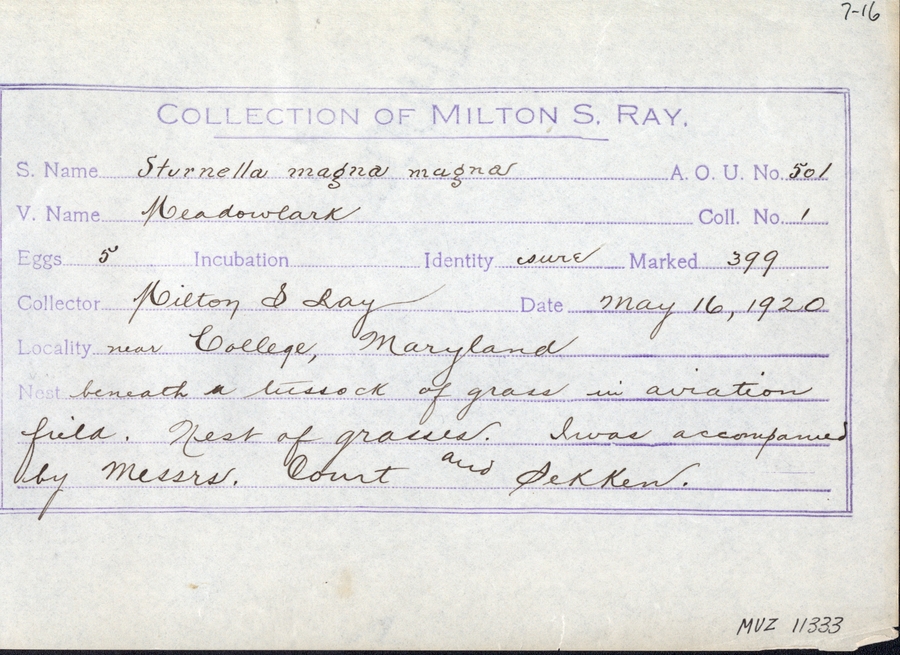 7-16
COLLECTION OF MILTON S. RAY.
S. Name Sturnella magna magna A. O. U. No. 501
V. Name Meadowlark Coll. No. 1
Eggs 5 Incubation Identity sure Marked 399
Collector Milton S Ray Date May 16, 1920
Locality near College, Maryland
Nest beneath a tussock of grass in aviation
field. Nest of grasses. I was accompanied
by Messrs. Court and
MVZ 11333